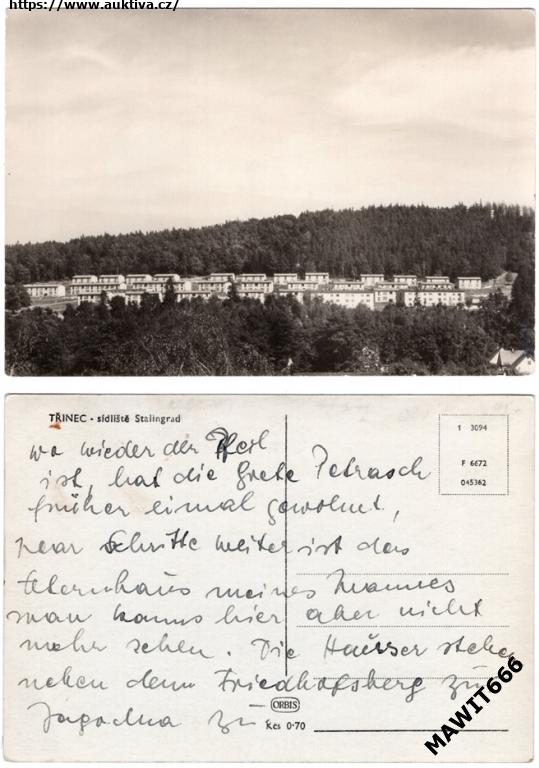 https://www.auktiva.cz/
TŘINEC - sídliště Stalingrad
1 3094
F 6672
045362
wo wieder der Pfeil
ist, hat die Grete Petrasch
früher einmal gewohnt,
paar Schritte weiter ist das
Elternhaus meines Mannes
man kanns hier aber nicht
mehr sehen. Die Häuser stehen
neben dem Friedhofsberg zu
Jagodna zu
ORBIS
Kčs 0·70
MAWIT666